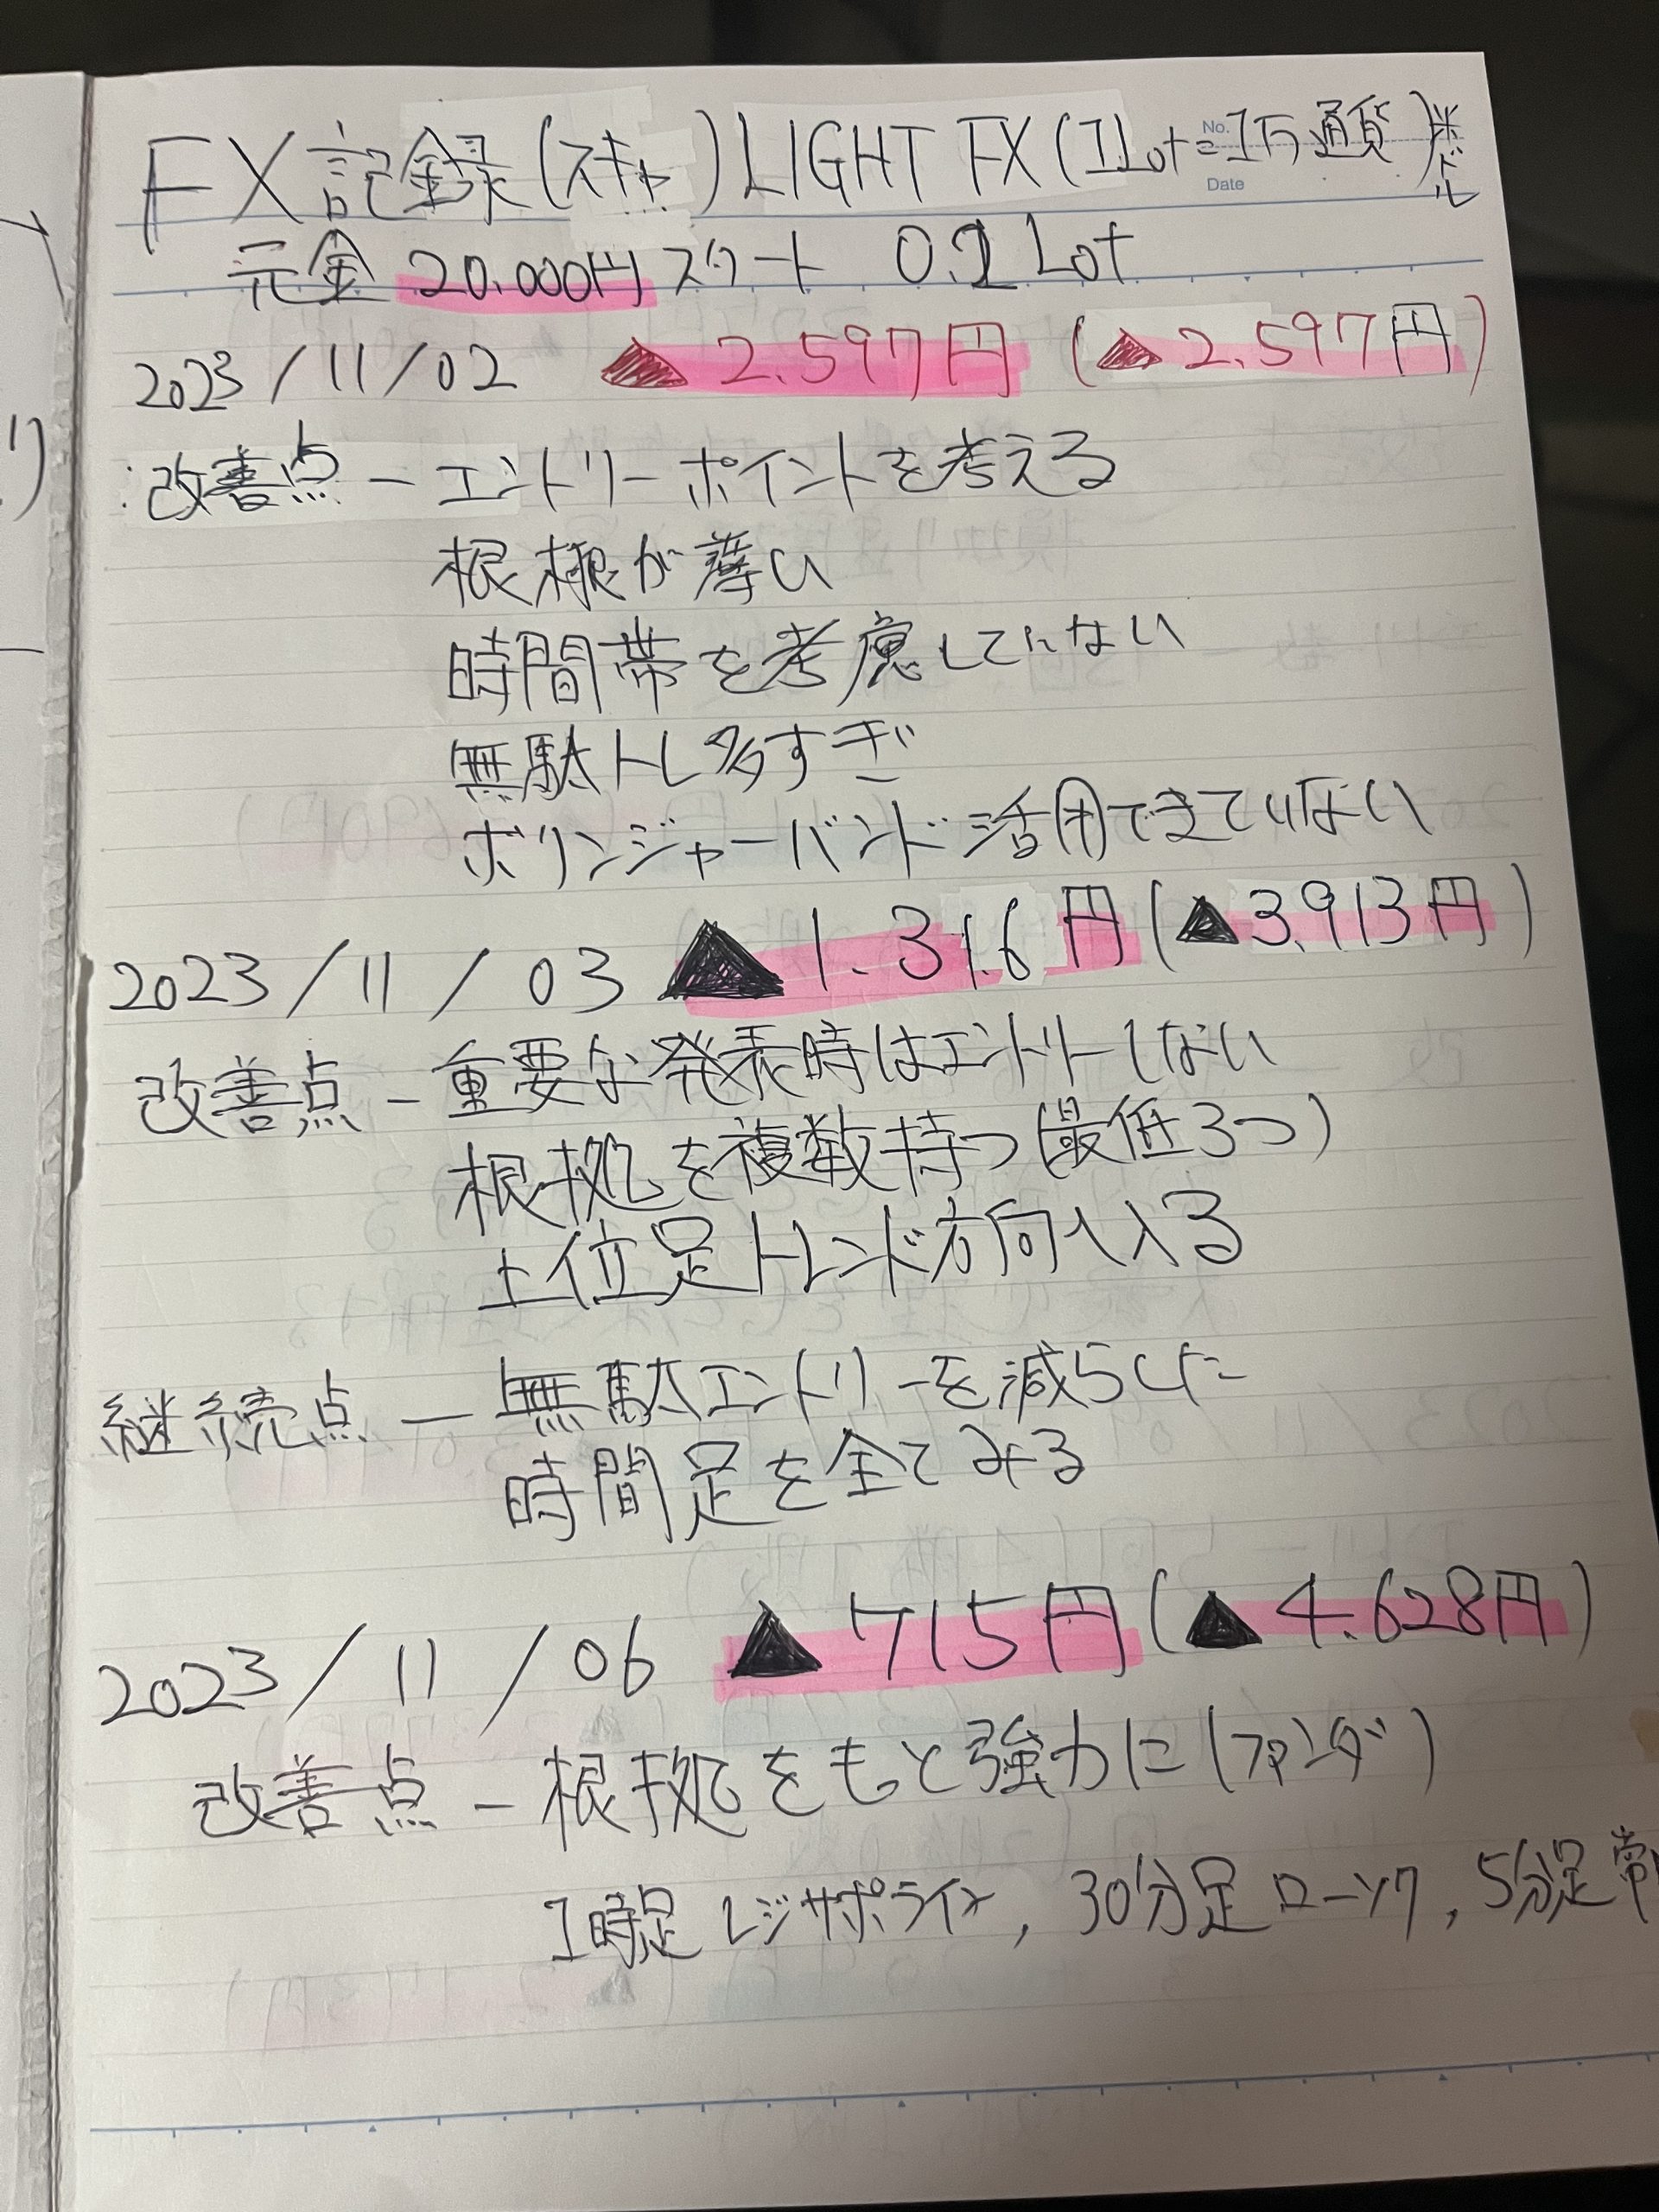 FX記録(スキャ)LIGHT FX(1Lot=1万通貨)米ドル
No.
Date
元金 20.000円 スタート 0.1 Lot
2023/11/02 ▲2.597円 (▲2.597円)
:改善点ーエントリーポイントを考える
根拠が薄い
時間帯を考慮していない
無駄トレ多すぎ
ボリンジャーバンド活用できていない
2023/11/03 ▲1.316円(▲3.913円)
改善点ー重要な発表時はエントリーしない
根拠を複数持つ(最低3つ)
上位足トレンド方向へ入る
継続点ー無駄エントリーを減らした
時間足を全てみる
2023/11/06 ▲715円(▲4.628円)
改善点ー根拠をもっと強力に(ファンダ)
1時足レジサポライン,30分足ローソク,5分足